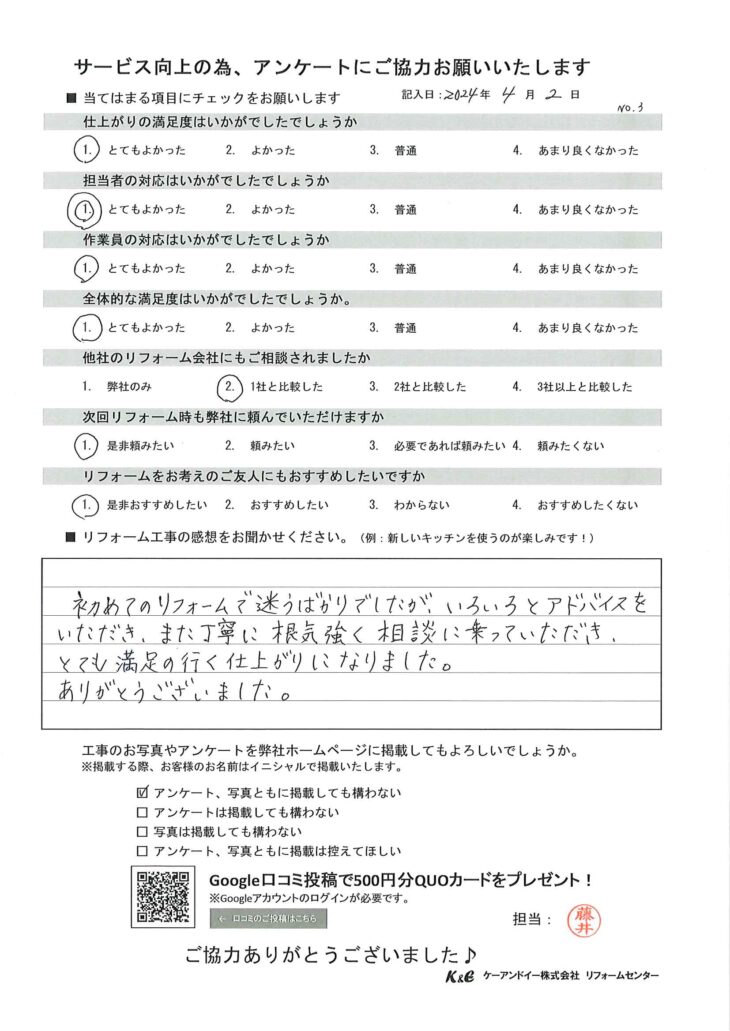 サービス向上の為、アンケートにご協力お願いいたします
■ 当てはまる項目にチェックをお願いします 記入日：2024年 4月 2日
NO.3
仕上がりの満足度はいかがでしたでしょうか
1. とてもよかった 2. よかった 3. 普通 4. あまり良くなかった
担当者の対応はいかがでしたでしょうか
1. とてもよかった 2. よかった 3. 普通 4. あまり良くなかった
作業員の対応はいかがでしたでしょうか
1. とてもよかった 2. よかった 3. 普通 4. あまり良くなかった
全体的な満足度はいかがでしたでしょうか。
1. とてもよかった 2. よかった 3. 普通 4. あまり良くなかった
他社のリフォーム会社にもご相談されましたか
1. 弊社のみ 2. 1社と比較した 3. 2社と比較した 4. 3社以上と比較した
次回リフォーム時も弊社に頼んでいただけますか
1. 是非頼みたい 2. 頼みたい 3. 必要であれば頼みたい 4. 頼みたくない
リフォームをお考えのご友人にもおすすめしたいですか
1. 是非おすすめしたい 2. おすすめしたい 3. わからない 4. おすすめしたくない
■ リフォーム工事の感想をお聞かせください。（例：新しいキッチンを使うのが楽しみです！）
初めてのリフォームで迷うばかりでしたが、いろいろとアドバイスを
いただき、また丁寧に根気強く相談に乗っていただき、
とても満足の行く仕上がりになりました。
ありがとうございました。
工事のお写真やアンケートを弊社ホームページに掲載してもよろしいでしょうか。
※掲載する際、お客様のお名前はイニシャルで掲載いたします。
☑ アンケート、写真ともに掲載しても構わない
□ アンケートは掲載しても構わない
□ 写真は掲載しても構わない
□ アンケート、写真ともに掲載は控えてほしい
Google口コミ投稿で500円分QUOカードをプレゼント！
※Googleアカウントのログインが必要です。
← 口コミのご投稿はこちら
担当： 藤井
ご協力ありがとうございました♪
K&E ケーアンドイー株式会社 リフォームセンター